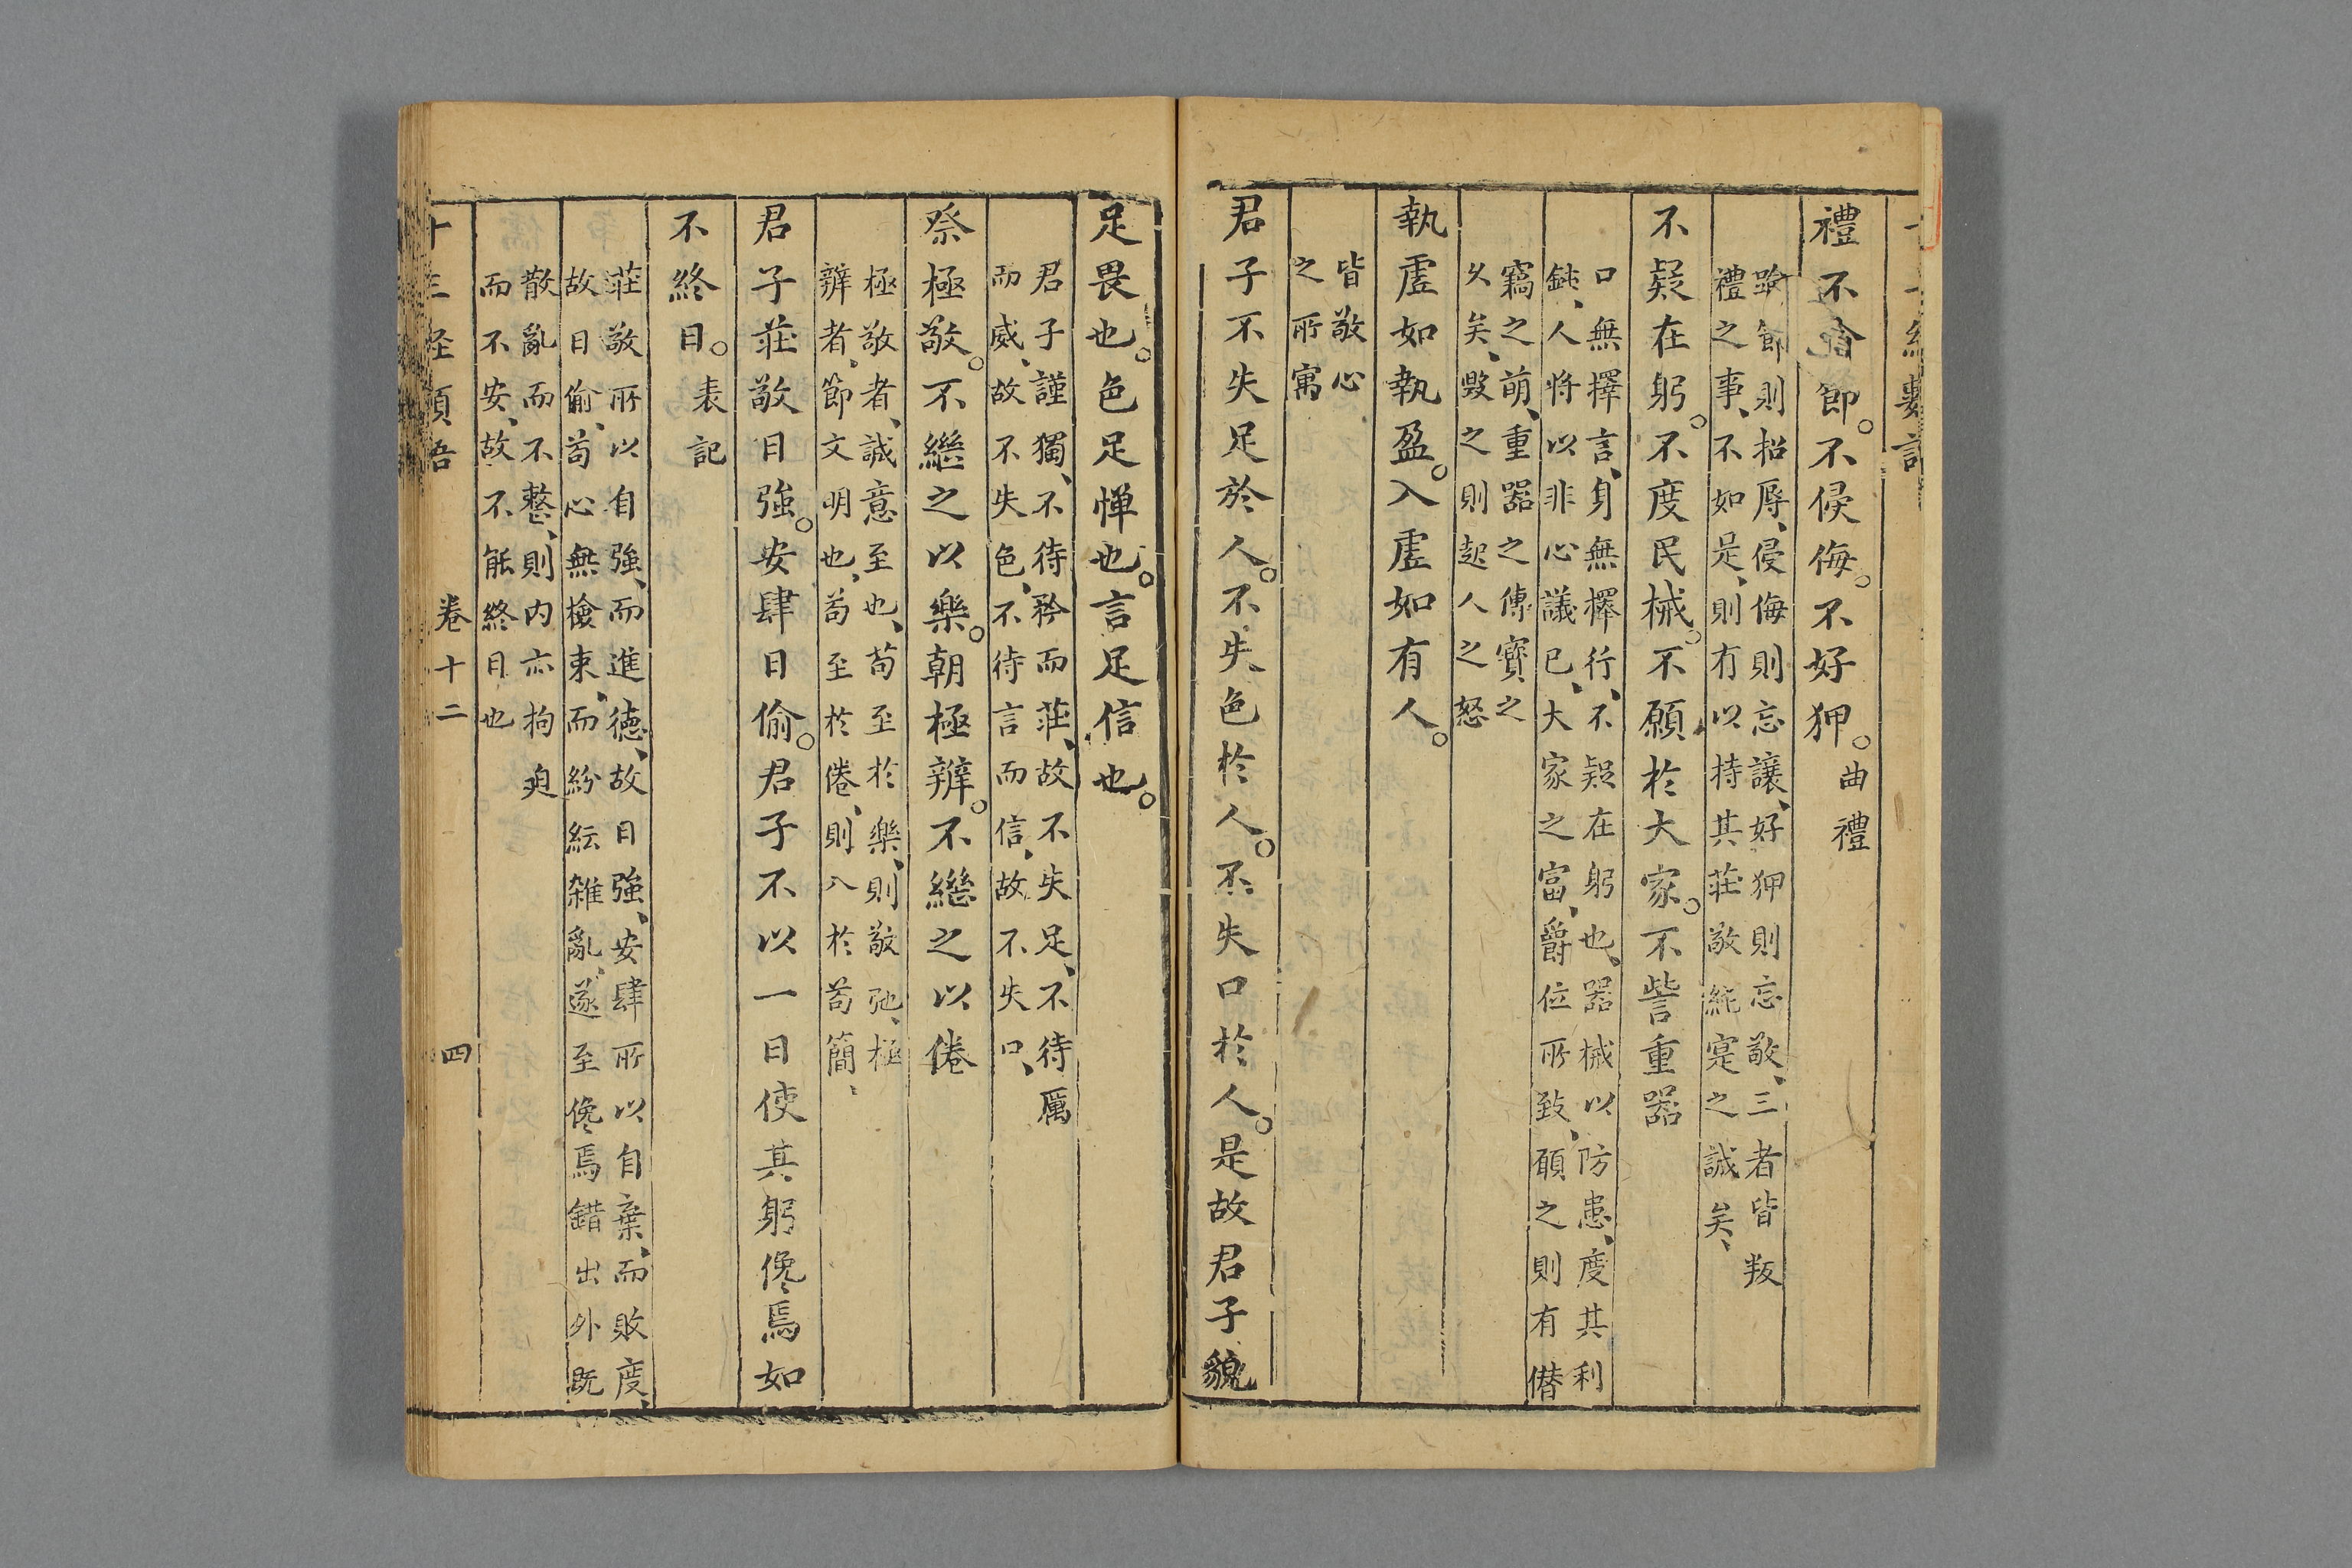 禮不踰節。不侵侮。不好狎。曲禮
踰節則招辱、侵侮則忘讓、好狎則忘敬、三者皆叛
禮之事、不如是、則有以持其莊敬純寔之誠矣、
不疑在躬。不度民械。不願於大家。不訾重器
口無擇言、身無擇行、不疑在躬也、器械以防患、度其利
鈍、人將以非心議已、大家之富、爵位所致、願之則有僭
竊之萌、重器之傳寶之
久矣、毀之則起人之怒
執虛如執盈。入虛如有人。
皆敬心
之所寓
君子不失足於人。不失色於人。不失口於人。是故君子貌
足畏也。色足憚也。言足信也。
君子謹獨、不待矜而莊、故不失足、不待厲
而威、故不失色、不待言而信、故不失口、
祭極敬。不繼之以樂。朝極辨。不繼之以倦
極敬者、誠意至也、苟至於樂、則敬弛、極
辨者、節文明也、苟至於倦、則入於苟簡、
君子莊敬日強。安肆日偷。君子不以一日使其躬儳焉如
不終日。表記
莊敬所以自強、而進德、故日強、安肆所以自棄、而敗度、
故日偷、苟心無檢束、而紛紜雜亂、遂至儳焉錯出外既
散亂而不整、則內亦拘迫
而不安、故不能終日也
十三經 卷十二 四